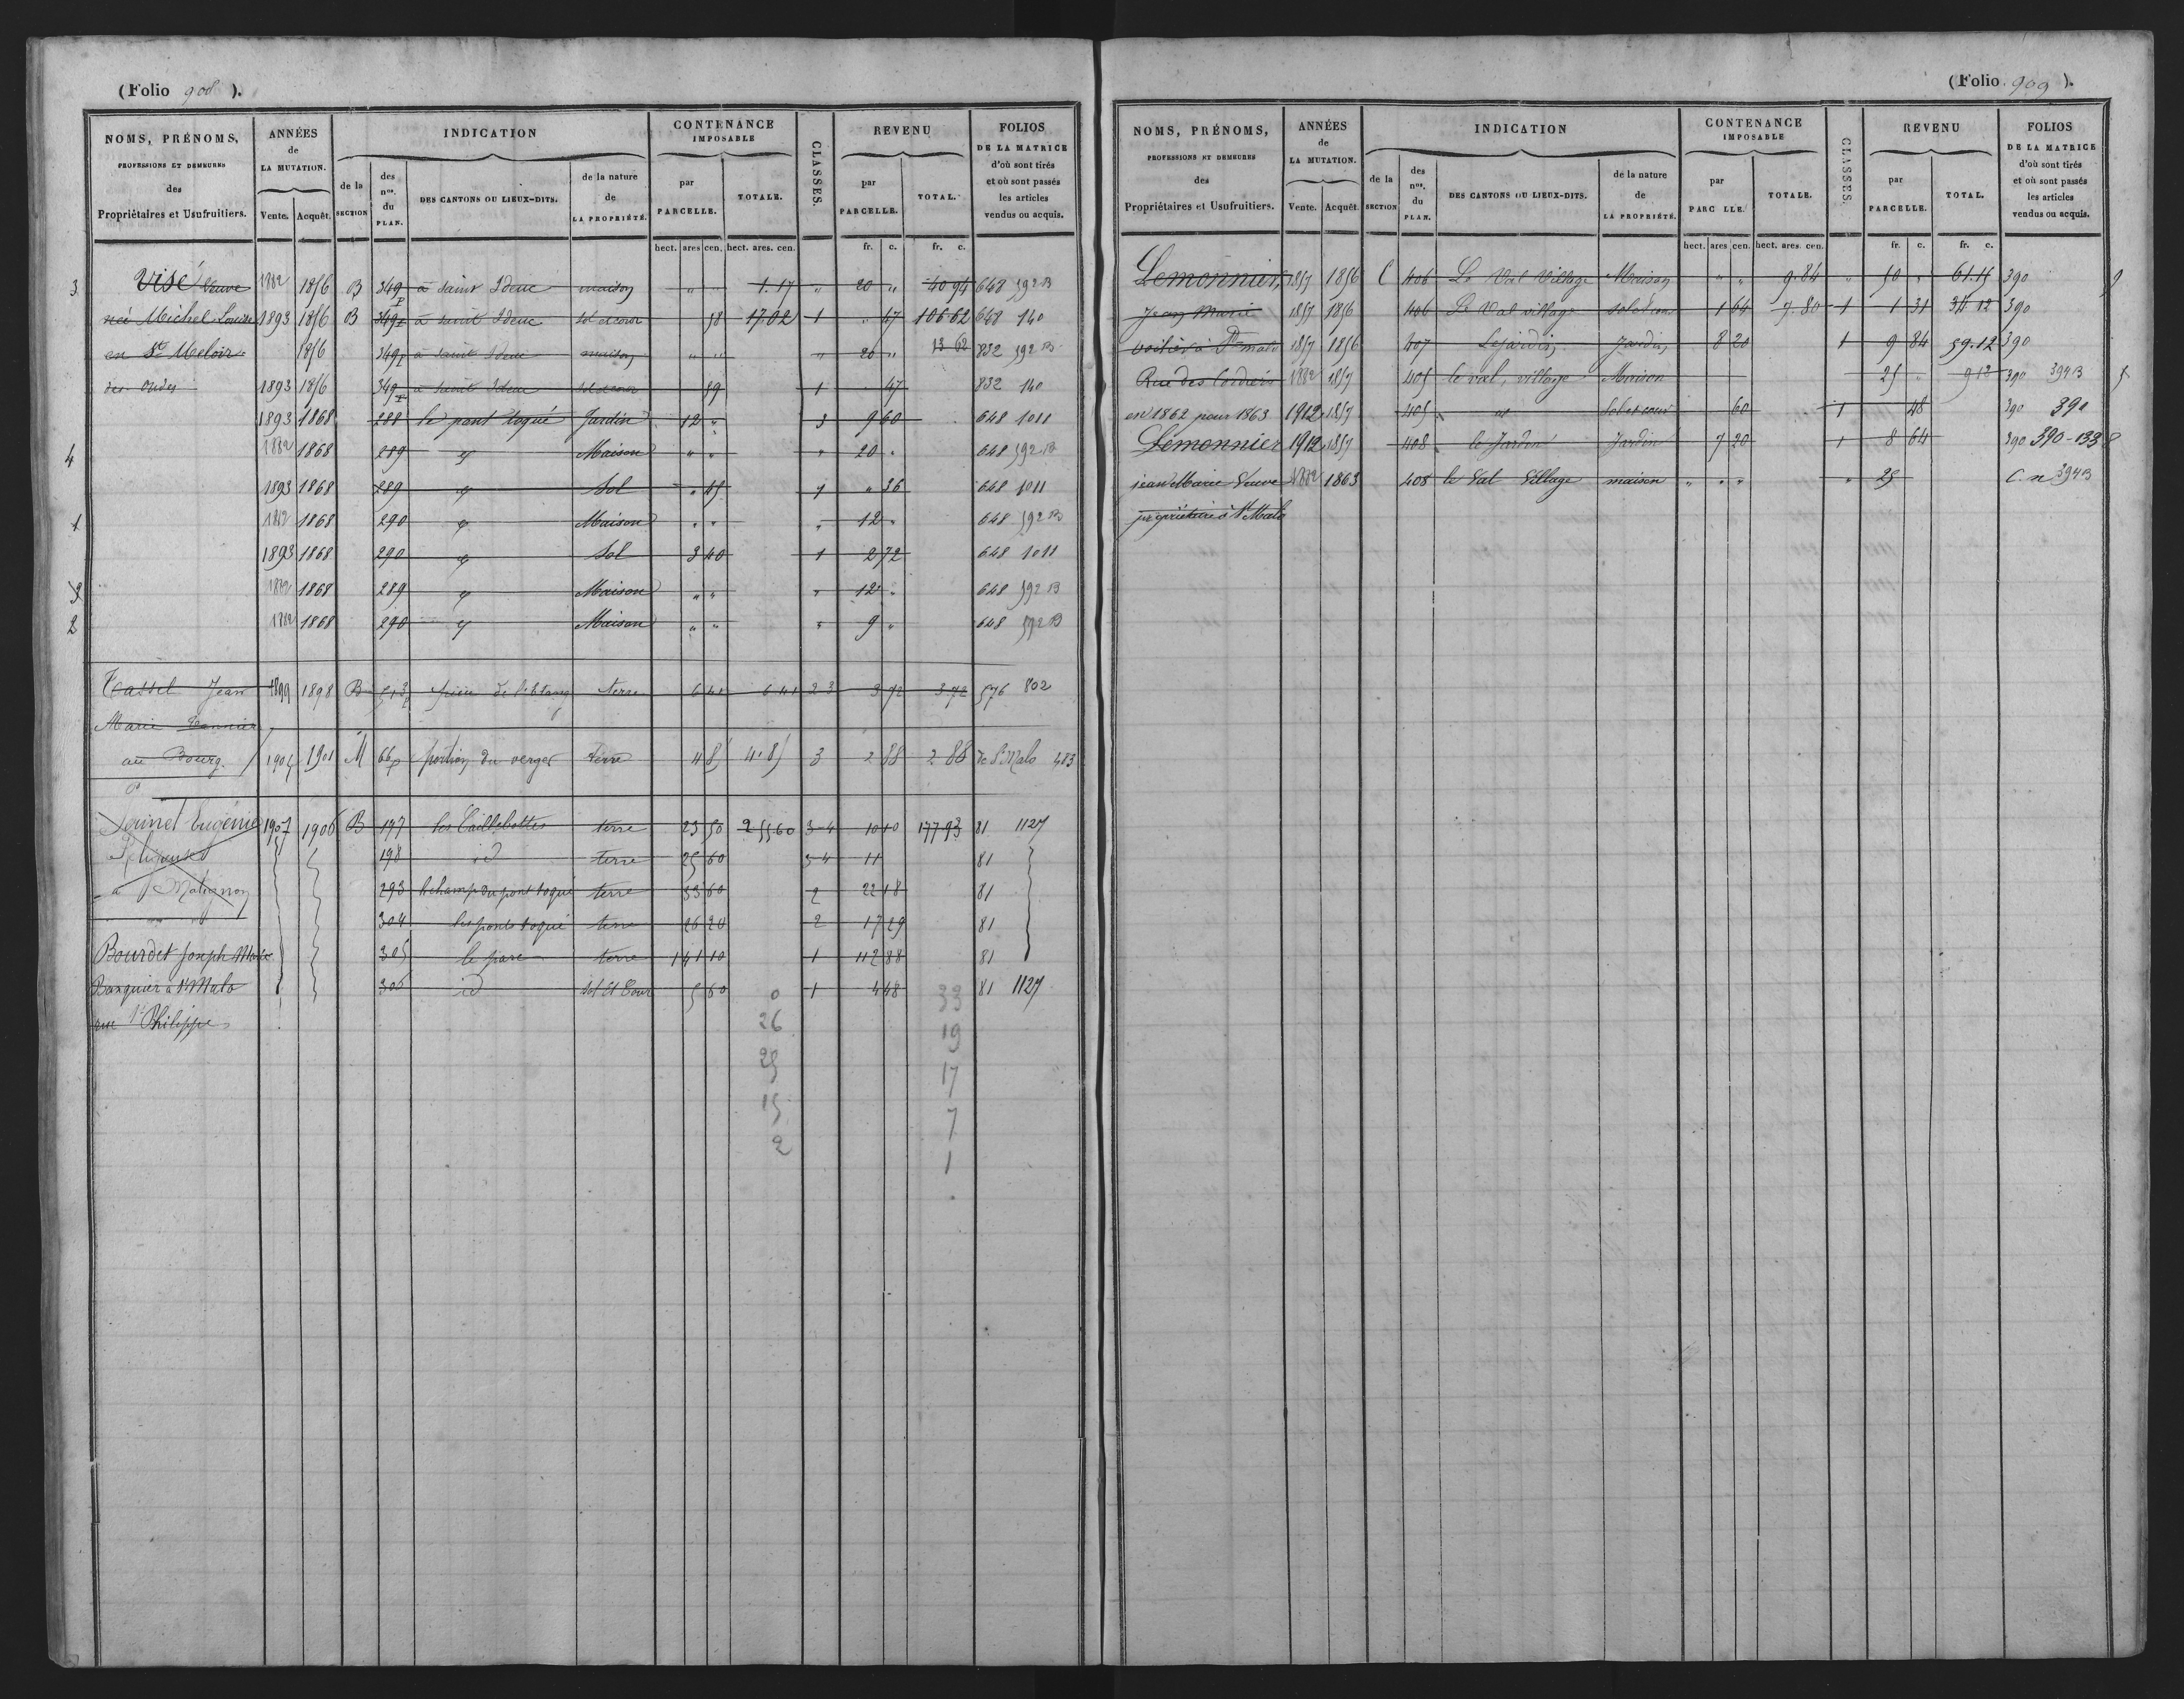 (Folio 908 ).
NOMS, PRÉNOMS, PROFESSIONS ET DEMEURES des Propriétaires et Usufruitiers.
ANNÉES de LA MUTATION. Vente. Acquêt.
INDICATION de la SECTION des nos. du PLAN. DES CANTONS OU LIEUX-DITS. de la nature de LA PROPRIÉTÉ.
CONTENANCE IMPOSABLE par PARCELLE. TOTALE.
CLASSES.
REVENU par PARCELLE. TOTAL.
FOLIOS DE LA MATRICE d'où sont tirés et où sont passés les articles vendus ou acquis.
hect. ares cen. hect. ares. cen. fr. c. fr. c.
3 Visé Veuve 1882 1856 B 349 p à saint Ideuc maison " " 1.17 " 20 " 40 94 648 592 B
née Michel Louise 1893 1856 B 349 p à saint Ideuc sol et cour 58 17.02 1 " 47 106 62 648 140
en St Meloir 1856 349 p à saint Ideuc maison " " " 20 " 13 62 832 592 B
des ondes 1893 1856 349 p à saint Ideuc sol et cour 59 1 47 832 140
1893 1868 288 le pont toqué Jardin 12 " 3 9 60 648 1011
4 1882 1868 289 Maison " " " 20 " 648 592 B
1893 1868 289 Sol " 45 1 " 36 648 1011
1 1882 1868 290 Maison " " " 12 " 648 592 B
1893 1868 290 Sol 3 40 1 2 72 648 1011
1882 1868 289 Maison " " " 12 " 648 592 B
2 1882 1868 290 Maison " " " 9 " 648 592 B
Tassel Jean 1899 1898 B pièce de l'étang terre 6 41 6 41 2 3 3 72 3 72 576 802
Marie
au Bourg. 1905 1901 M 66 p portion du verger terre 4 85 4.85 3 2 88 2 88 de St Malo 483
Eugénie 1907 1906 B 197 les Caillebottes terre 23 50 2 55 60 3-4 10 10 177.93 81 1127
198 id terre 25 60 3-4 11 81
à Matignon 293 le champ du pont toqué terre 33 60 2 22 18 81
304 les ponts toqué terre 26 20 2 17 29 81
Bourdet Joseph 305 le parc terre 1 41 10 1 112 88 81
Banquier à St Malo 306 id sol et Cour 5 60 1 4 48 81 1127
rue St Philippe
0 33
26 19
25 17
15 7
2 1
(Folio 909 ).
NOMS, PRÉNOMS, PROFESSIONS ET DEMEURES des Propriétaires et Usufruitiers.
ANNÉES de LA MUTATION. Vente. Acquêt.
INDICATION de la SECTION des nos. du PLAN. DES CANTONS OU LIEUX-DITS. de la nature de LA PROPRIÉTÉ.
CONTENANCE IMPOSABLE par PARC LLE. TOTALE.
CLASSES.
REVENU par PARCELLE. TOTAL.
FOLIOS DE LA MATRICE d'où sont tirés et où sont passés les articles vendus ou acquis.
hect. ares cen. hect. ares. cen. fr. c. fr. c.
Lemonnier, 1857 1856 C 406 Le Val Village Maison " " 9.84 " 50 " 61.15 390
Jean Marie 1857 1856 406 Le Val village sol et cour 1 64 7.80 1 1 31 34 12 390
voilier à St malo 1857 1856 407 Le jardin Jardin 8 20 1 9 84 59.12 390
Rue des Cordiers 1882 1857 405 le val, village Maison 25 " 9 12 390 394 B
en 1862 pour 1863 1912 1857 405 id Sol et cour 60 1 48 390 390
Lemonnier 1912 1857 408 le Jardin Jardin 7 20 1 8 64 390 390-133
jean Marie Veuve 1882 1863 408 le Val Village maison " " " " 25 C. n 394 B
propriétaire à St Malo